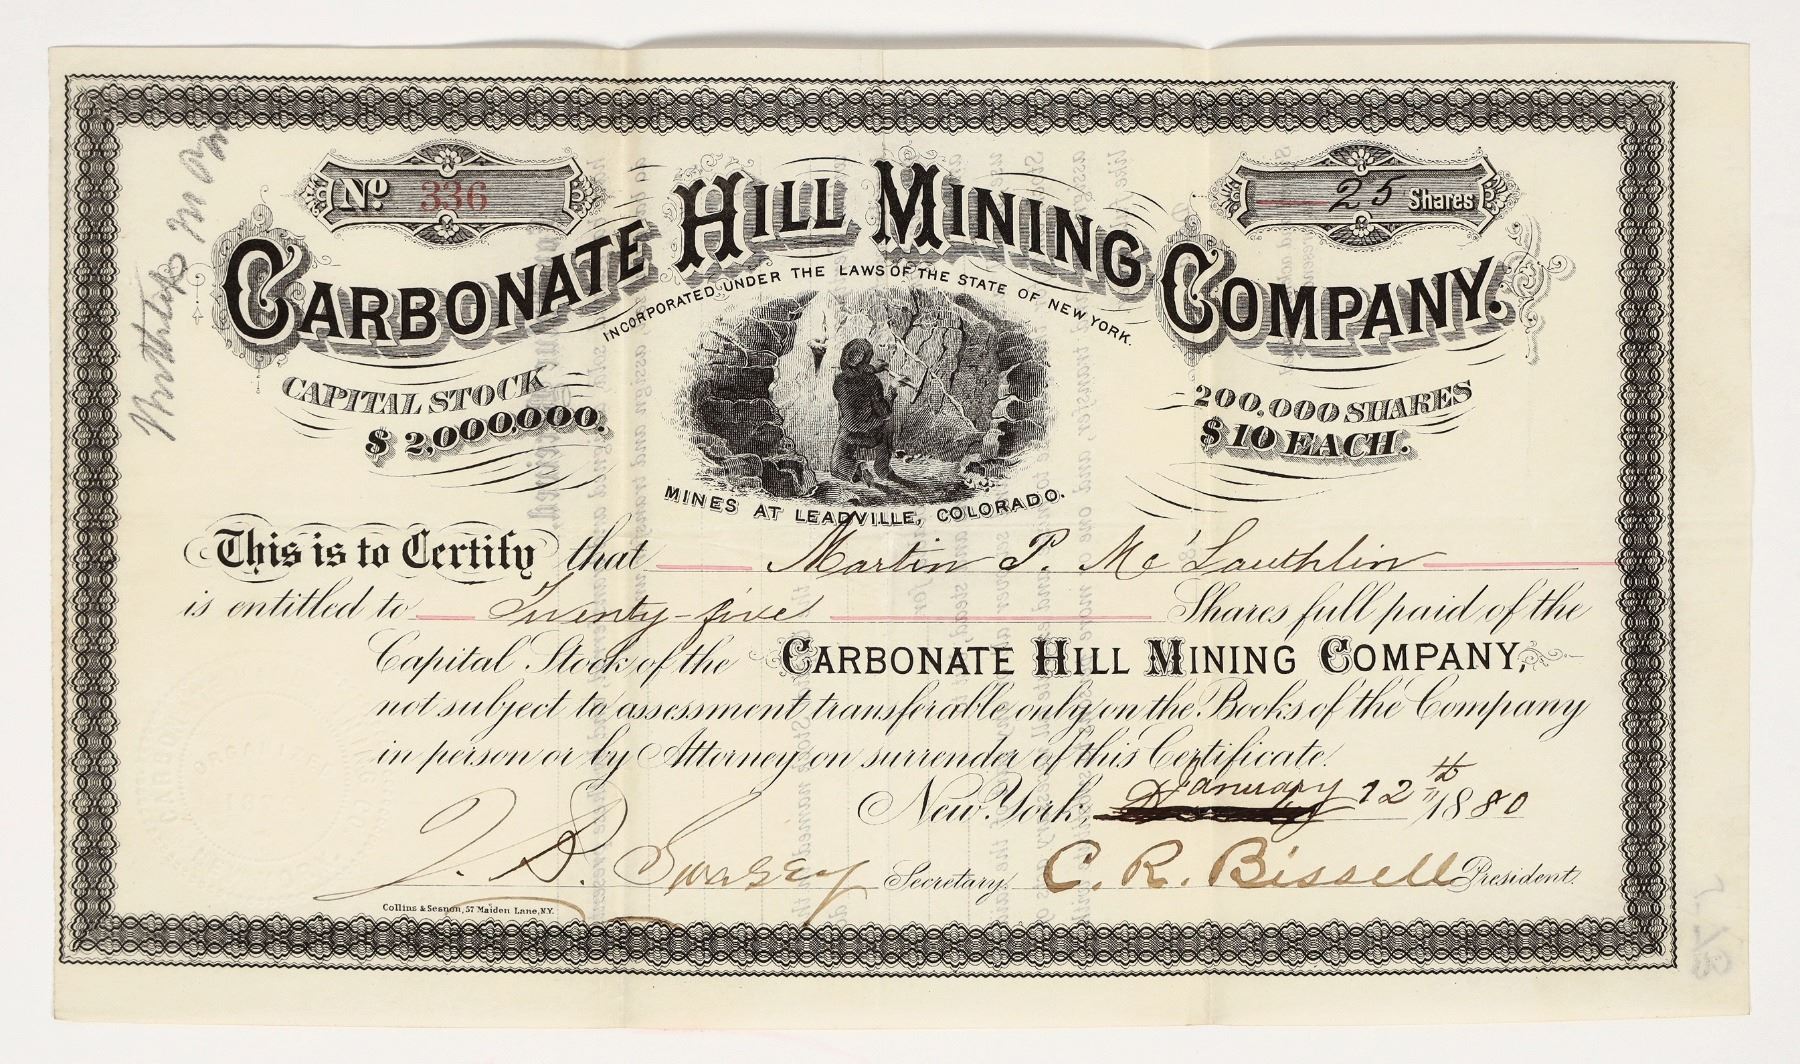 No 336
25 Shares
CARBONATE HILL MINING COMPANY.
INCORPORATED UNDER THE LAWS OF THE STATE OF NEW YORK.
CAPITAL STOCK
$ 2,000,000.
200,000 SHARES
$ 10 EACH.
MINES AT LEADVILLE, COLORADO.
This is to Certify that Martin P. Mc'Lauthlin
is entitled to Twenty-five Shares full paid of the
Capital Stock of the CARBONATE HILL MINING COMPANY,
not subject to assessment transferable only on the Books of the Company
in person or by Attorney on surrender of this Certificate.
New York, January 12th 1880
J. D. Swasey Secretary. C. R. Bissell President.
Collins & Sesnon, 57 Maiden Lane, N.Y.